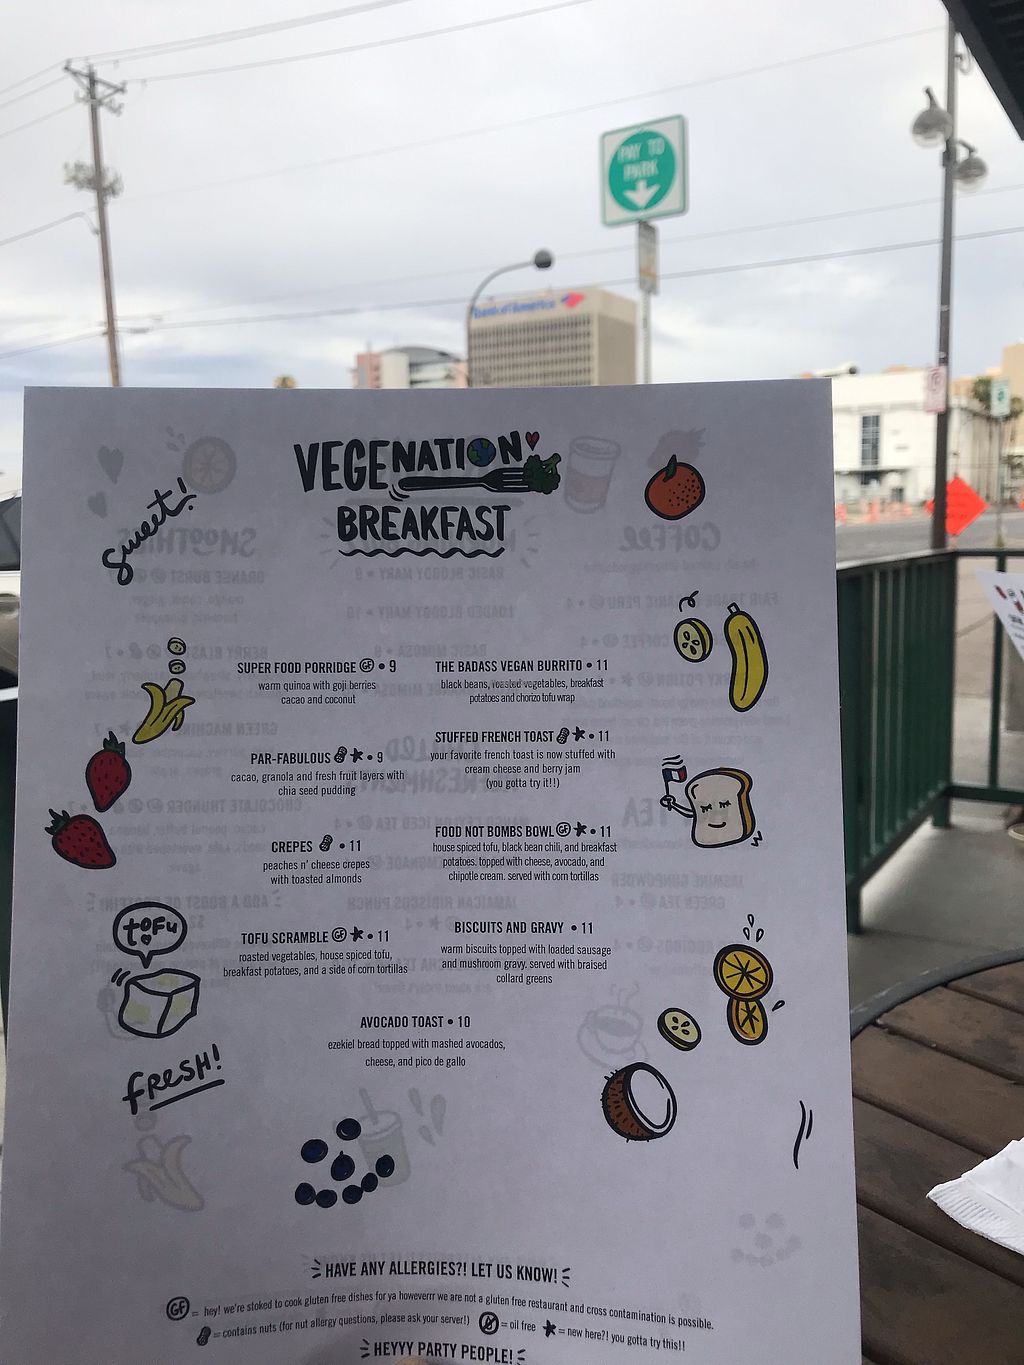 PAY TO
PARK
Bank of America
VEGENATION
BREAKFAST
sweet!
SUPER FOOD PORRIDGE GF • 9
warm quinoa with goji berries
cacao and coconut
PAR-FABULOUS • 9
cacao, granola and fresh fruit layers with
chia seed pudding
CREPES • 11
peaches n' cheese crepes
with toasted almonds
TOFU SCRAMBLE GF • 11
roasted vegetables, house spiced tofu,
breakfast potatoes, and a side of corn tortillas
THE BADASS VEGAN BURRITO • 11
black beans, roasted vegetables, breakfast
potatoes and chorizo tofu wrap
STUFFED FRENCH TOAST • 11
your favorite french toast is now stuffed with
cream cheese and berry jam
(you gotta try it!!)
FOOD NOT BOMBS BOWL GF • 11
house spiced tofu, black bean chili, and breakfast
potatoes. topped with cheese, avocado, and
chipotle cream. served with corn tortillas
BISCUITS AND GRAVY • 11
warm biscuits topped with loaded sausage
and mushroom gravy. served with braised
collard greens
AVOCADO TOAST • 10
ezekiel bread topped with mashed avocados,
cheese, and pico de gallo
tofu
fresh!
HAVE ANY ALLERGIES?! LET US KNOW!
GF = hey! we're stoked to cook gluten free dishes for ya howeverrr we are not a gluten free restaurant and cross contamination is possible.
= contains nuts (for nut allergy questions, please ask your server!) = oil free = new here?! you gotta try this!!
HEYYY PARTY PEOPLE!